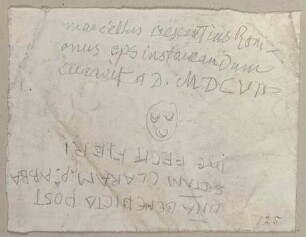 marcellus crescentius Rom-
anus eps instaurandum
curavit a D. MDCVII
DNA BENEDICTA POST
BEATAM CLARAM P.ª ABBA
DVC FECIT FIERI
125